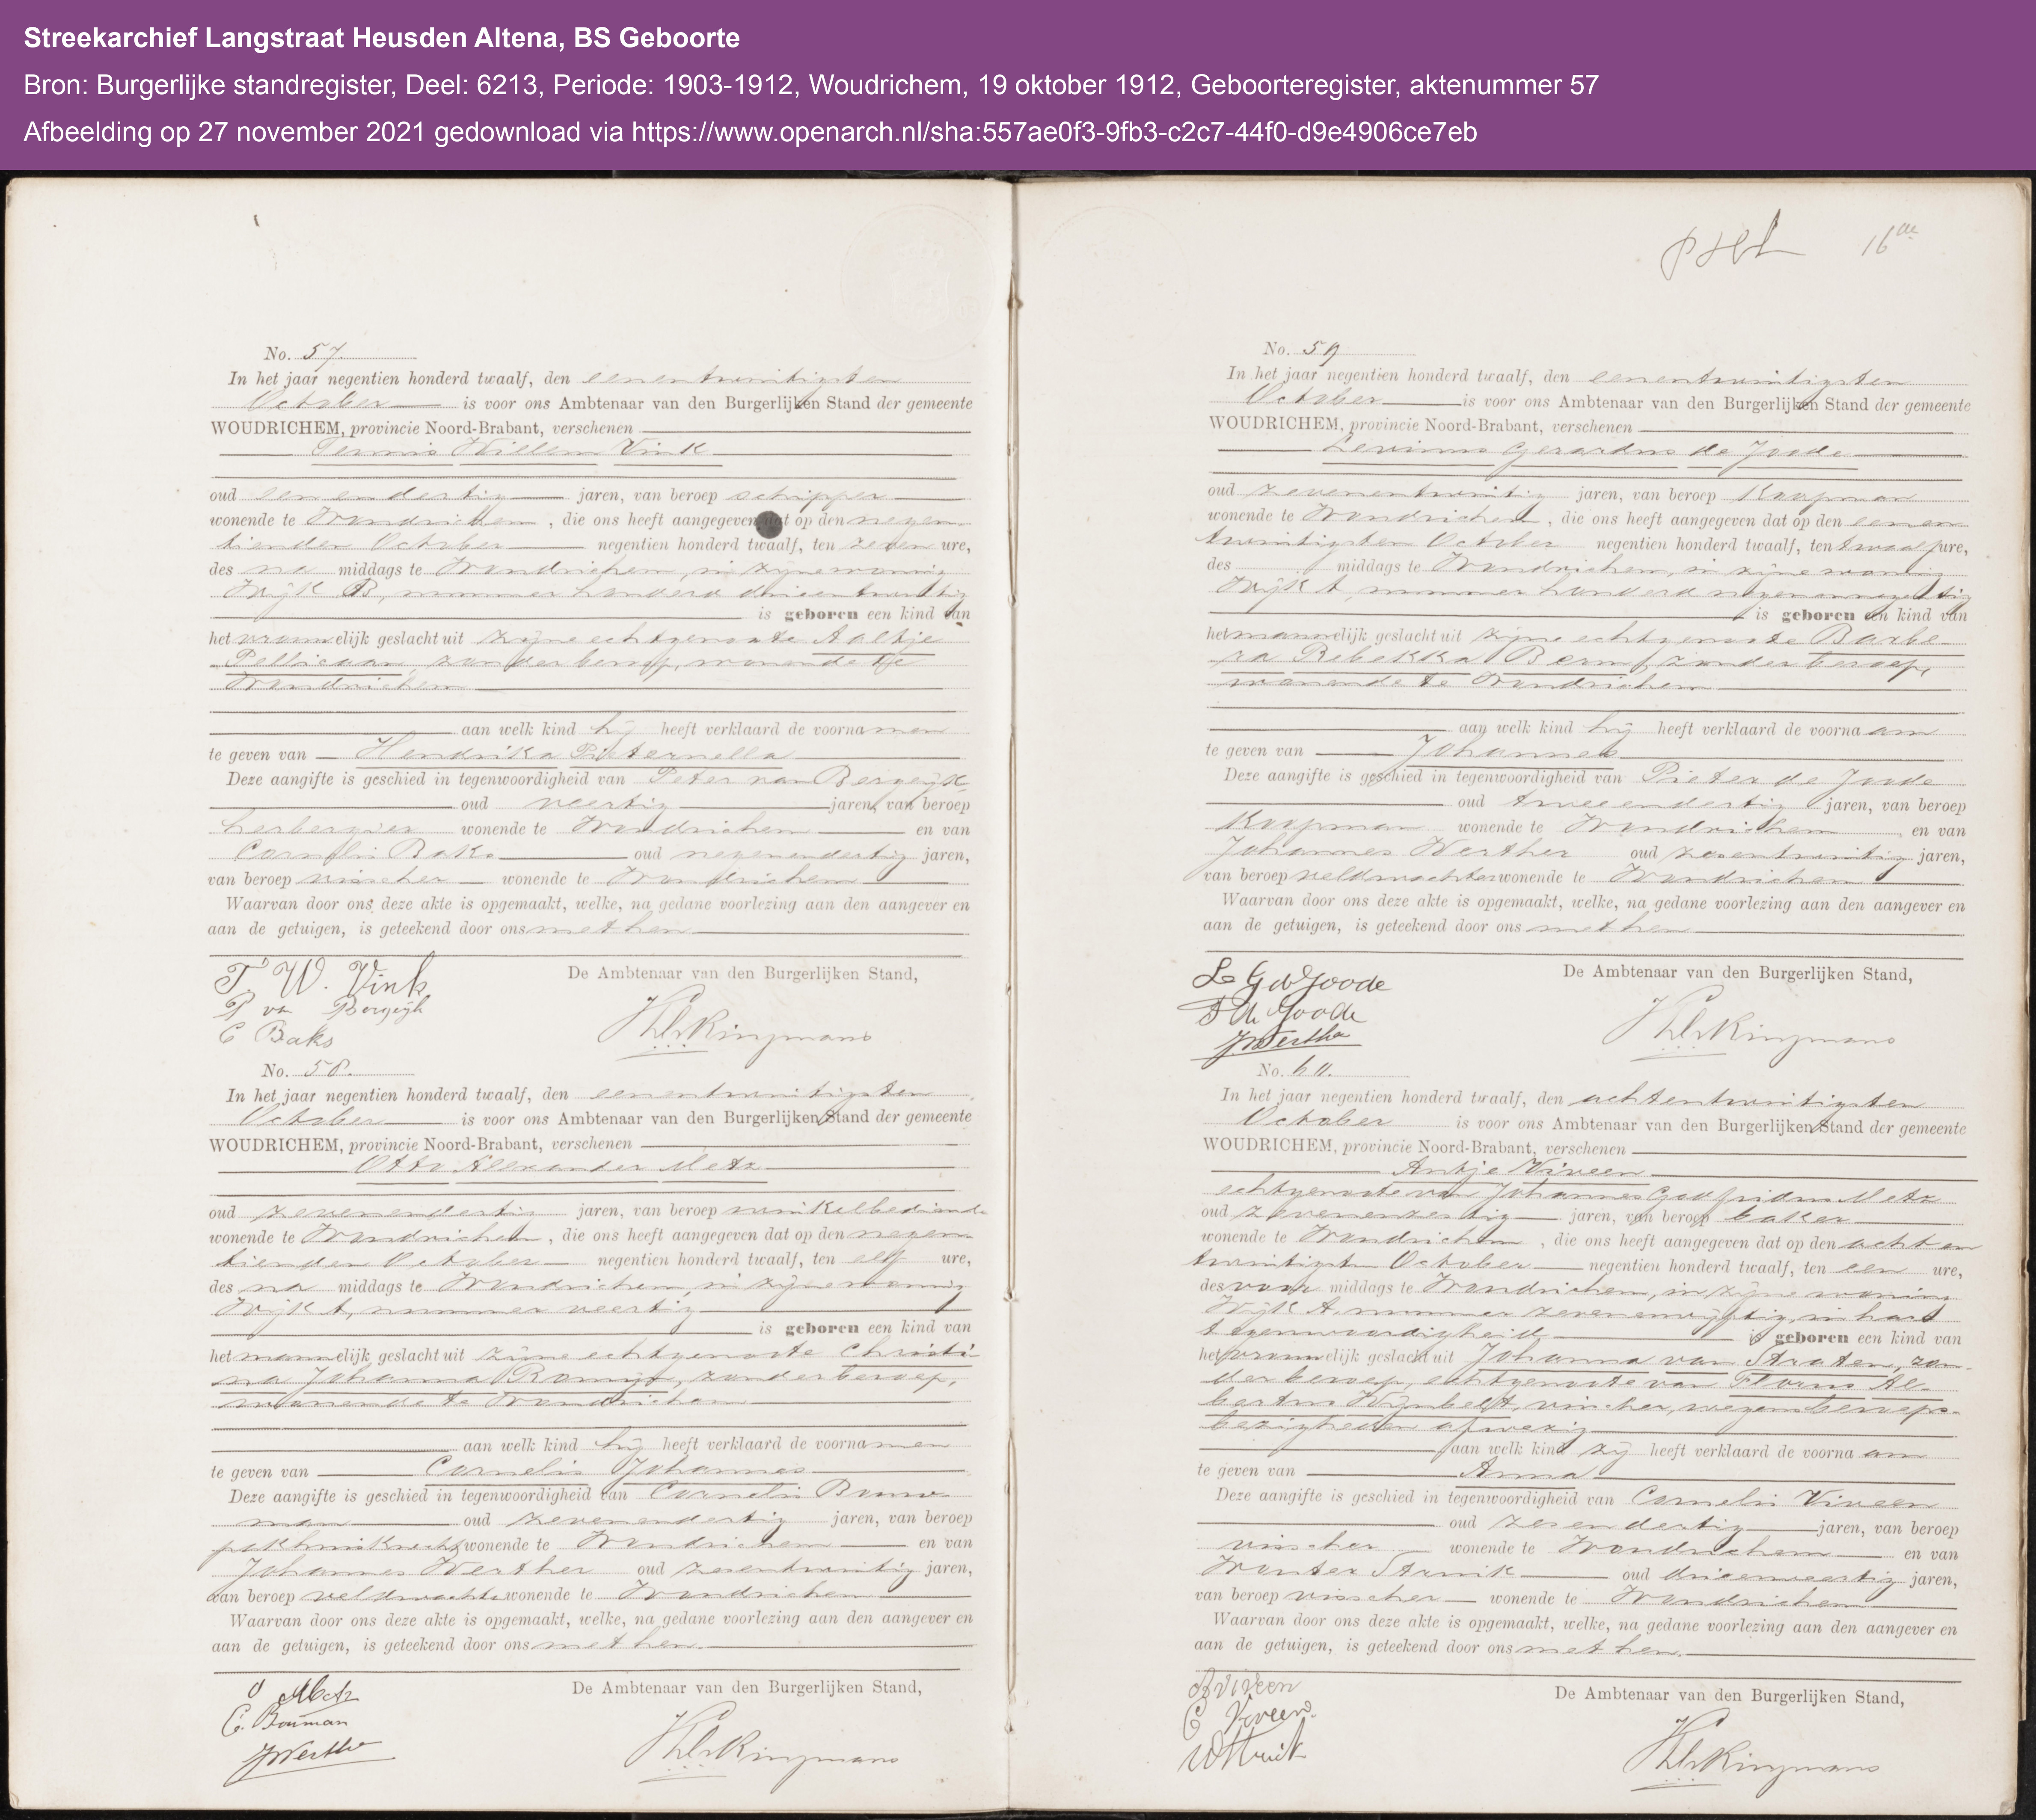 Streekarchief Langstraat Heusden Altena, BS Geboorte
Bron: Burgerlijke standregister, Deel: 6213, Periode: 1903-1912, Woudrichem, 19 oktober 1912, Geboorteregister, aktenummer 57
Afbeelding op 27 november 2021 gedownload via https://www.openarch.nl/sha:557ae0f3-9fb3-c2c7-44f0-d9e4906ce7eb
No. 57.
In het jaar negentien honderd twaalf, den eenentwintigsten
October is voor ons Ambtenaar van den Burgerlijken Stand der gemeente
WOUDRICHEM, provincie Noord-Brabant, verschenen
Teunis Willem Vink
oud een en dertig jaren, van beroep schipper
wonende te Woudrichem, die ons heeft aangegeven dat op den negen
tienden October negentien honderd twaalf, ten zeven ure,
des na middags te Woudrichem, in zijne woning
Wijk B, nummer honderd drieentwintig
is geboren een kind van
het vrouwelijk geslacht uit zijne echtgenoote Aaltje
Pellicaan zonder beroep, wonende te
Woudrichem
aan welk kind hij heeft verklaard de voornamen
te geven van Hendrika Pieternella
Deze aangifte is geschied in tegenwoordigheid van Peter van Bergeijk
oud veertig jaren, van beroep
herbergier wonende te Woudrichem en van
Cornelis Baks oud negenendertig jaren,
van beroep visscher wonende te Woudrichem
Waarvan door ons deze akte is opgemaakt, welke, na gedane voorlezing aan den aangever en
aan de getuigen, is geteekend door ons met hen.
De Ambtenaar van den Burgerlijken Stand,
T. W. Vink
P van Bergeijk
C Baks
No. 58.
In het jaar negentien honderd twaalf, den eenentwintigsten
October is voor ons Ambtenaar van den Burgerlijken Stand der gemeente
WOUDRICHEM, provincie Noord-Brabant, verschenen
Otto Alexander Metz
oud zevenendertig jaren, van beroep winkelbediende
wonende te Woudrichem, die ons heeft aangegeven dat op den negen
tienden October negentien honderd twaalf, ten elf ure,
des na middags te Woudrichem, in zijne woning
Wijk A, nummer veertig
is geboren een kind van
het mannelijk geslacht uit zijne echtgenoote Christi
na Johanna Romijn, zonder beroep,
wonende te Woudrichem
aan welk kind hij heeft verklaard de voornamen
te geven van Cornelis Johannes
Deze aangifte is geschied in tegenwoordigheid van Cornelis Bouw
man oud zevenendertig jaren, van beroep
pakhuisknecht wonende te Woudrichem en van
Johannes Werther oud zesentwintig jaren,
van beroep veldwachter wonende te Woudrichem
Waarvan door ons deze akte is opgemaakt, welke, na gedane voorlezing aan den aangever en
aan de getuigen, is geteekend door ons met hen.
De Ambtenaar van den Burgerlijken Stand,
O Metz
C. Bouman
J Werther
16de
No. 59
In het jaar negentien honderd twaalf, den eenentwintigsten
October is voor ons Ambtenaar van den Burgerlijken Stand der gemeente
WOUDRICHEM, provincie Noord-Brabant, verschenen
Levinus Gerardus de Joode
oud zevenentwintig jaren, van beroep Koopman
wonende te Woudrichem, die ons heeft aangegeven dat op den eenen
twintigsten October negentien honderd twaalf, ten twaalf ure,
des middags te Woudrichem, in zijne woning
Wijk A, nummer honderd negenennegentig
is geboren een kind van
het mannelijk geslacht uit zijne echtgenoote Barbe
ra Rebekka Born, zonder beroep,
wonende te Woudrichem
aan welk kind hij heeft verklaard de voornaam
te geven van Johannes
Deze aangifte is geschied in tegenwoordigheid van Pieter de Joode
oud tweeendertig jaren, van beroep
Koopman wonende te Woudrichem en van
Johannes Werther oud zesentwintig jaren,
van beroep veldwachter wonende te Woudrichem
Waarvan door ons deze akte is opgemaakt, welke, na gedane voorlezing aan den aangever en
aan de getuigen, is geteekend door ons met hen.
De Ambtenaar van den Burgerlijken Stand,
L G de Joode
P de Joode
J Werther
No. 60.
In het jaar negentien honderd twaalf, den achtentwintigsten
October is voor ons Ambtenaar van den Burgerlijken Stand der gemeente
WOUDRICHEM, provincie Noord-Brabant, verschenen
Antje Viveen
echtgenoote van Johannes Godfridus Metz
oud zevenenzestig jaren, van beroep baker
wonende te Woudrichem, die ons heeft aangegeven dat op den acht en
twintigsten October negentien honderd twaalf, ten een ure,
des voor middags te Woudrichem, in zijne woning
Wijk A, nummer zevenenvijftig, in hare
tegenwoordigheid is geboren een kind van
het vrouwelijk geslacht uit Johanna van Straten, zon-
der beroep, echtgenoote van Florus Al-
bertus Wijnbelt, visscher, wegens beroeps-
bezigheden afwezig
aan welk kind zij heeft verklaard de voornaam
te geven van Anna
Deze aangifte is geschied in tegenwoordigheid van Cornelis Viveen
oud zesendertig jaren, van beroep
visscher wonende te Woudrichem en van
Wouter Struik oud drieenveertig jaren,
van beroep visscher wonende te Woudrichem
Waarvan door ons deze akte is opgemaakt, welke, na gedane voorlezing aan den aangever en
aan de getuigen, is geteekend door ons met hen.
De Ambtenaar van den Burgerlijken Stand,
A Viveen
C Viveen.
W Struik